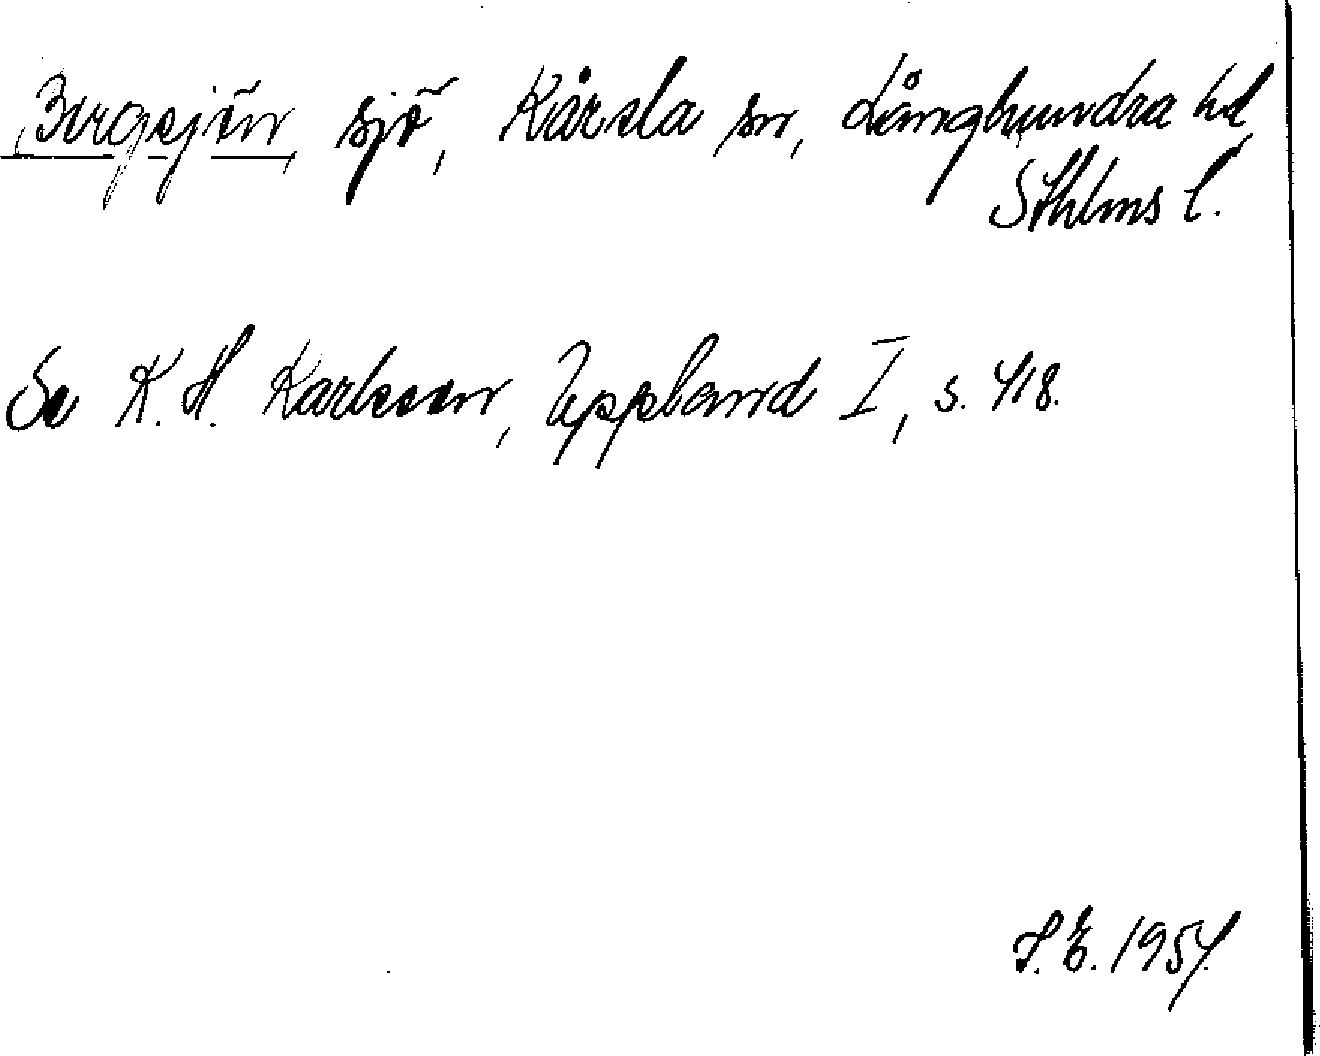 Bergsjön, sjö, Kårsta sn, Långhundra hd,
Sthlms l.
Se K. H. Karlsson, Uppland I, s. 418.
S. E. 1954.